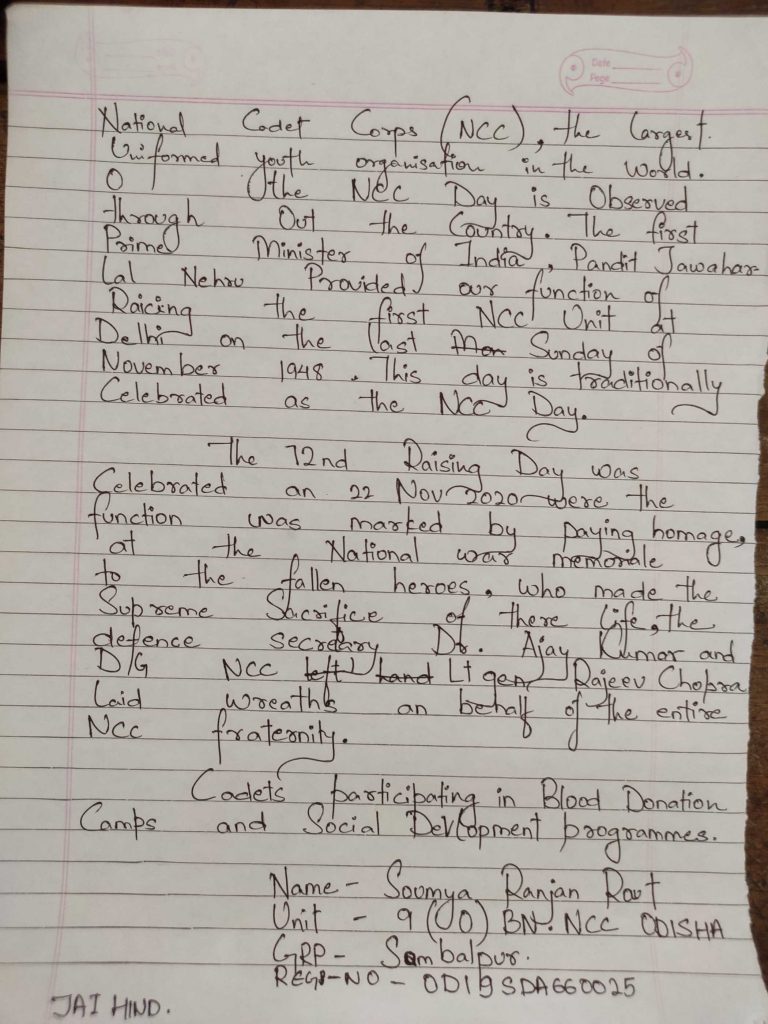 Date
Page
National Cadet Corps (NCC), the largest.
Uniformed youth organisation in the world.
O the NCC Day is Observed
through Out the Country. The first
Prime Minister of India, Pandit Jawahar
Lal Nehru Provided our function of
Raicing the first NCC Unit at
Delhi on the last Mon Sunday of
November 1948. This day is traditionally
Celebrated as the NCC Day.
The 72nd Raising Day was
Celebrated an 22 Nov 2020 were the
function was marked by paying homage,
at the National war memoriale
to the fallen heroes, who made the
Supreme Sacrifice of there life, the
defence secretary Dr. Ajay Kumar and
D/G NCC left hand Lt gen Rajeev Chopra
Laid wreaths an behalf of the entire
NCC fraternity.
Cadets participating in Blood Donation
Camps and Social Devlopment programmes.
Name - Soumya Ranjan Rout
Unit - 9 (O) BN. NCC ODISHA
GRP - Sambalpur.
REGI-NO - OD19SDA660025
JAI HIND.